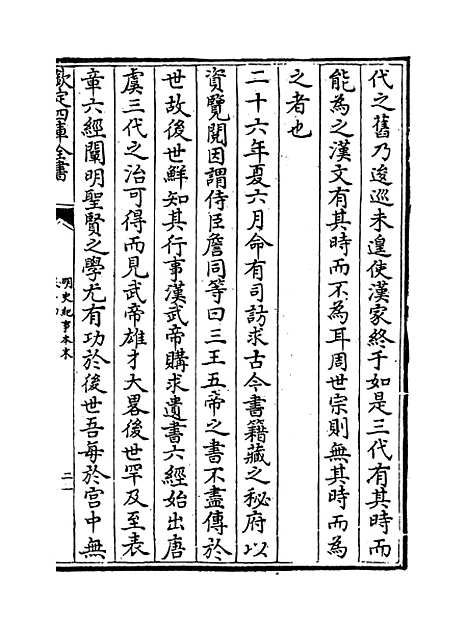 代之舊乃逡巡未遑使漢家終于如是三代有其時而
能為之漢文有其時而不為耳周世宗則無其時而為
之者也
二十六年夏六月命有司訪求古今書籍藏之秘府以
資覽閱因謂侍臣詹同等曰三王五帝之書不盡傳於
世故後世鮮知其行事漢武帝購求遺書六經始出唐
虞三代之治可得而見武帝雄才大畧後世罕及至表
章六經闡明聖賢之學尤有功於後世吾每於宫中無
欽定四庫全書
明史紀事本末